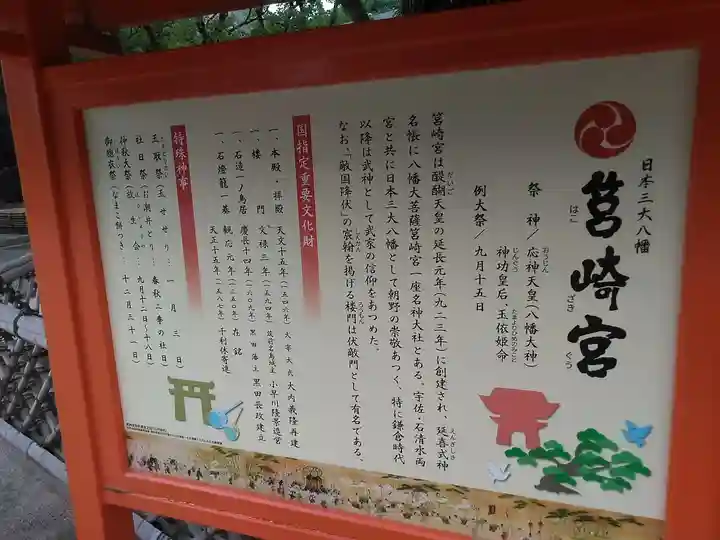 日本三大八幡
筥崎宮
はこ ざき ぐう
祭 神／応神天皇(八幡大神)
おうじん
神功皇后、玉依姫命
じんぐう たまよりひめのみこと
例大祭／九月十五日
筥崎宮は醍醐天皇の延長元年(九二三年)に創建され、延喜式神
だいご えんぎしき
名帳に八幡大菩薩筥崎宮一座名神大社とある。宇佐・石清水両
宮と共に日本三大八幡として朝野の崇敬あつく、特に鎌倉時代
以降は武神として武家の信仰をあつめた。
なお、「敵国降伏」の宸翰を掲げる楼門は伏敵門として有名である。
しんかん ろうもん
国指定重要文化財
一、本殿、拝殿 天文十五年(一五四六年)大宰大弐 大内義隆再建
一、楼 門 文禄三年(一五九四年)筑前名島城主 小早川隆景造営
一、石造一ノ鳥居 慶長十四年(一六〇九年)黒田藩主 黒田長政建立
一、石燈籠一基 観応元年(一三五〇年)在銘
天正十五年(一五八七年)千利休寄進
特殊神事
玉取祭(玉せせり… 一月三日)
社日祭(お潮井とり… 春秋二季の社日)
仲秋大祭(放生会… 九月十二日～十八日)
御胞衣祭(なまこ餅つき… 十二月三十一日)